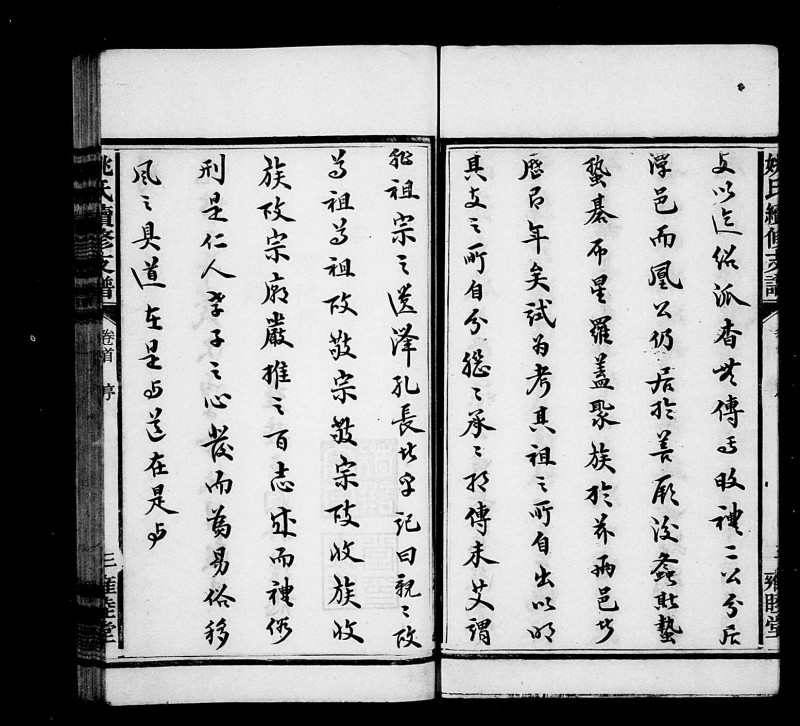 姚氏續修支譜
雍睦堂
支以迄紹派杳無傳焉政禮二公分居
浮邑而鳳公仍居於善厥後螽斯蟄
蟄棊布星羅蓋聚族於兩邑者
歷百年矣試为考其祖之所自出以明
其支之所自分繼〻承〻相傳未艾謂
非祖宗之遺澤孔長者乎記曰親〻故
尊祖尊祖故敬宗敬宗故收族收
族故宗廟嚴推之百志成而禮俗
刑是仁人孝子之心發而為易俗移
風之具道在是与道在是与
姚氏續修支譜 卷首 序 三 雍睦堂